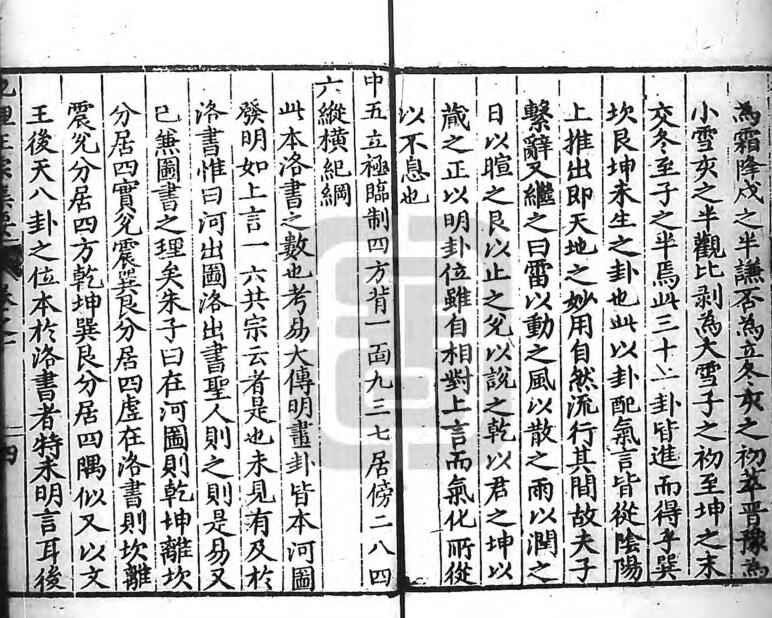 為霜降戌之半謙否為立冬亥之初萃晋豫為
小雪亥之半觀比剥為大雪子之初至坤之末
交冬至子之半焉此三十二卦皆進而得乎巽
坎艮坤未生之卦也此以卦配氣言皆從陰陽
上推出即天地之妙用自然流行其間故夫子
繫辭又繼之曰雷以動之風以散之雨以潤之
日以暄之艮以止之兊以說之乾以君之坤以
蔵之正以明卦位雖自相對上言而氣化所從
以不息也
中五立極臨制四方背一面九三七居傍二八四
六縱横紀綱
此本洛書之數也考易大傳明畫卦皆本河圖
發明如上言一六共宗云者是也未見有及於
洛書惟曰河出圖洛出書聖人則之則是易又
已兼圖書之理矣朱子曰在河圖則乾坤離坎
分居四實兊震巽艮分居四虚在洛書則坎離
震兊分居四方乾坤巽艮分居四隅似又以文
王後天八卦之位本於洛書者特未明言耳後
四